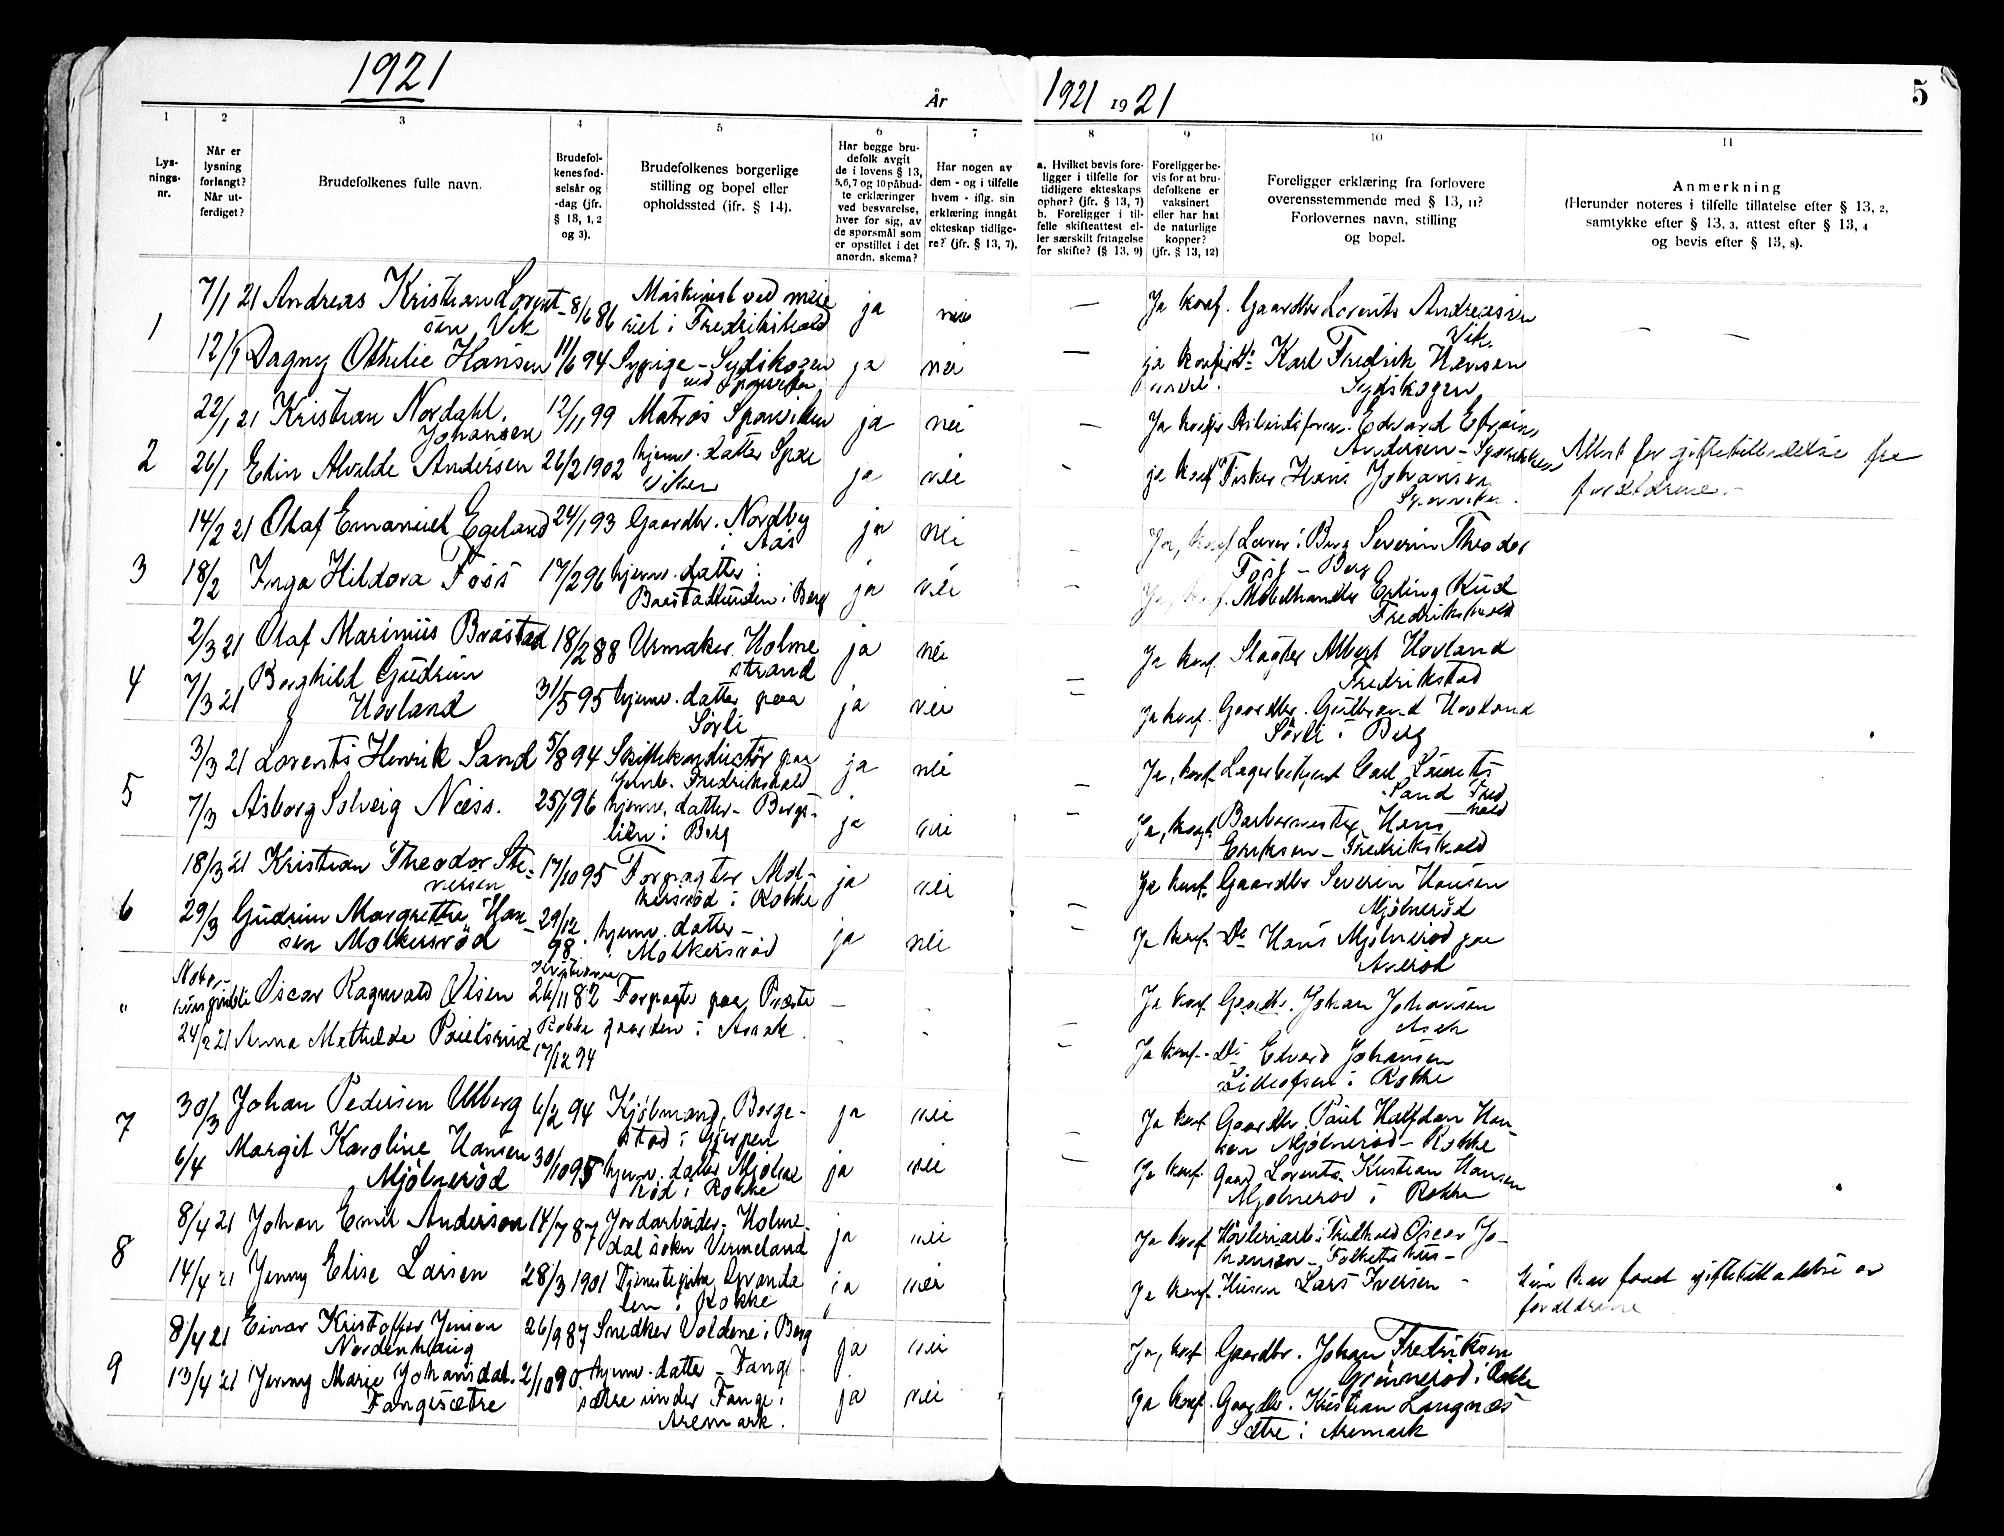 1921
År
1921 19 21
5
1 2 3 4 5 6 7 8 9 10 11
Lys-
nings-
nr.
Når er
lysning
forlangt?
Når ut-
ferdiget?
Brudefolkenes fulle navn.
Brudefol-
kenes fød-
selsår og
-dag (jfr.
§ 13, 1, 2
og 3).
Brudefolkenes borgerlige
stilling og bopel eller
opholdssted (ifr. § 14).
Har begge bru-
defolk avgit
de i lovens § 13,
5,6,7 og 10 påbud-
te erklæringer
ved besvarelse,
hver for sig, av
de spørsmål som
er opstillet i det
anordn. skema?
Har nogen av
dem - og i tilfelle
hvem - iflg. sin
erklæring inngått
ekteskap tidlige-
re? (jfr. § 13, 7).
a. Hvilket bevis fore-
ligger i tilfelle for
tidligere ekteskaps
ophør? (jfr. § 13, 7)
b. Foreligger i til-
felle skifteattest el-
ler særskilt fritagelse
for skifte? (§ 13, 9)
Foreligger be-
vis for at bru-
defolkene er
vaksinert
eller har hat
de naturlige
kopper?
(jfr. § 13, 12)
Foreligger erklæring fra forlovere
overensstemmende med § 13, 11?
Forlovernes navn, stilling
og bopel.
Anmerkning
(Herunder noteres i tilfelle tillatelse efter § 13, 2,
samtykke efter § 13, 3, attest efter § 13, 4
og bevis efter § 13, 8).
1 7/1 21 Andreas Kristian Lorent- 8/6 86 Maskinist ved meie ja nei — Ja konf. Gaardbr Lorents Andreasen
sen Vik riet i Fredrikshald Vik.
12/1 Dagny Othilie Hansen 11/6 94 Sypige - Sydskogen ja nei — ja Karl Fredrik Hansen
ved Sponviken Sydskogen
2 22/1 21 Kristian Nordahl 12/1 99 Matros Sponviken ja nei - Ja Edvard
Johansen Andersen -
26/1 Elin Alvilde Andersen 26/2 1902 hjemv. datter Spon ja nei - ja konf Fisker Hans Johansen Attest for giftetilladelse fra
viken Sponviken forældrene.-
3 14/2 21 Olaf Emanuel Egeland 24/1 93 Gaardbr. Nordby ja nei - Ja, konf Lærer i Berg Severin Theodor
i Aas Foss - Berg
18/2 Inga Hildora Foss 17/2 96 hjemv. datter ja nei - Ja, konf. Møbelhandler Erling Rud
i Berg Fredrikshald
4 2/3 21 Olaf Marinius Bråstad 18/2 88 Urmaker. Holme ja nei Ja konf. Slagter Albert Hovland
strand Fredrikstad
7/3 21 Borghild Gudrun 31/5 95 hjemv. datter paa ja nei Ja konf. Gaardbr. Gulbrand Hovland
Hovland Sørli Sørli i Berg
5 3/3 21 Lorents Henrik Sand 5/8 94 Skiftekonduktør paa ja nei - Ja, konf. Lagerbetjent Carl Laurits
Fredrikshald Sand Fred
7/3 Asborg Solveig Næss. 25/1 96 hjemv. datter - Bergs- ja nei - Ja, konf. Barbermester Hans hald
lien i Berg Eriksen - Fredrikshald
6 18/3 21 Kristian Theodor Ste- 17/10 95 Forpagter Mol- ja nei - Ja konf. Gaardbr Severin Hansen
nersen kersrød i Rokke Mjølnerød
29/3 Gudrun Margrethe Han- 29/12 hjemv. datter - ja nei - Ja konf. Do Hans Mjølnerød paa
sen Molkersrød 98. i Molkersrød Averød
" Oscar Ragnvald Olsen 26/11 82 Forpagter paa Præste - Ja konf. Gaardbr. Johan Johansen
24/2 21 Anna Mathilde Rokke gaarden i Asak. - Asak
17/12 94 Ja konf. Do Edvard Johansen
i Rokke
7 30/3 Johan Pedersen Ulberg 6/2 94 Kjøbmand, Borge- ja nei - Ja konf Gaardbr. Paul Halfdan Han-
stad i Gjerpen sen Mjølnerød - Rokke
6/4 Margit Karoline Hansen 30/10 95 hjemv. datter Mjølne ja nei - Ja konf Gaard Lorents Kristian Hansen
Mjølnerød rød i Rokke Mjølnerød i Rokke
8 8/4 21 Johan Emil Anderson 14/7 87 Jordarbeider - Holme- ja nei Ja konf Oscar Jo-
dal soken Vermeland hansen -
14/4 21 Jenny Elise Larsen 28/3 1901 Tjenestepike ja nei Ja konf. Lars Iversen - har faaet giftetilladelse av
i Rokke forældrene
9 8/4 21 Einar Kristoffer Jensen 26/9 87 Snedker Voldene i Berg ja nei Ja, konf Gaardbr. Johan Fredriksen
Nordenhaug Grønnerød i Rokke
13/4 21 Jenny Marie Johansdat. 2/10 90 hjemv. datter - Fange ja nei Ja konf. Gaardbr. Kristian Langnæs
Fangesætre sætre under Fange i Sætre i Aremark
Aremark.